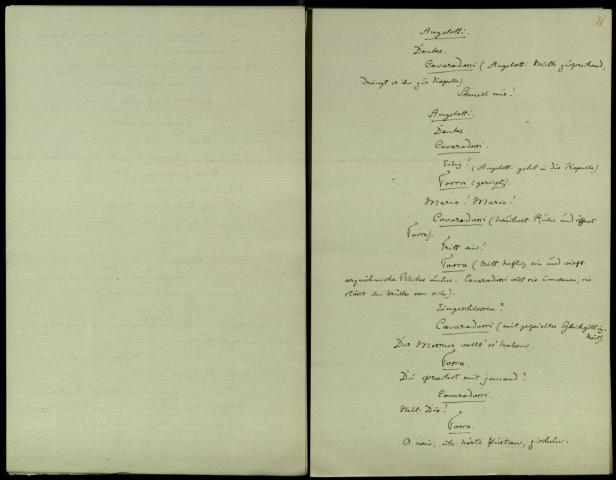 Angelotti.
Danke.
Cavaradossi (Angelotti Muth zusprechend,
drängt er ihn zur Kapelle).
Schnell nur!
Angelotti.
Danke
Cavaradossi.
Eilig! (Angelotti geht in die Kapelle)
Tosca (gereizt).
Mario! Mario!
Cavaradossi (heuchelt Ruhe und öffnet
Tosca).
Tritt ein!
Tosca (tritt heftig ein und wirft
argwöhnische Blicke umher. Cavaradossi will sie umarmen, sie
stösst den von sich).
Eingeschlossen?
Cavaradossi (mit gespielter Gleichgültig-
keit).
Der Messner wollt' es haben.
Tosca.
Du sprachst mit jemand?
Cavaradossi.
Mit Dir!
Tosca.
O nein, ich hörte flüstern, zischeln.